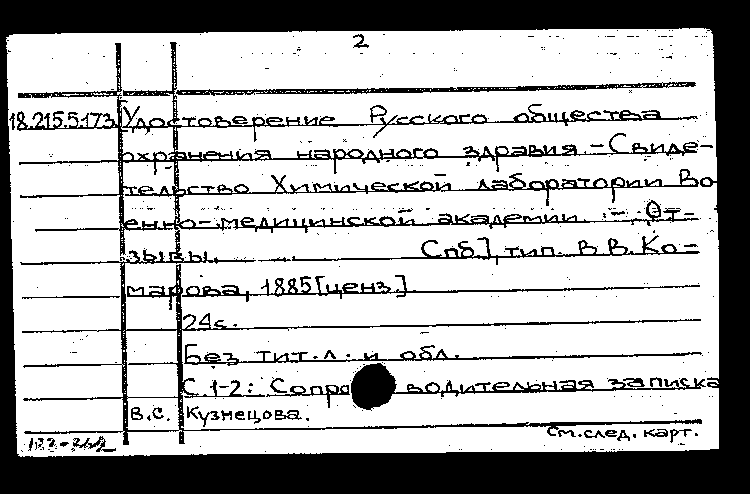 2
18.215.5.173 [Удостоверение Русского общества
охранения народного здравия. - Свиде-
тельство Химической лаборатории Во-
енно-медицинской академии. - От-
зывы. Спб], тип. В.В. Ко-
марова, 1885 [ценз.].
24с.
Без тит. л. и обл.
С.1-2: Сопроводительная записка
В.С. Кузнецова.
См. след. карт.